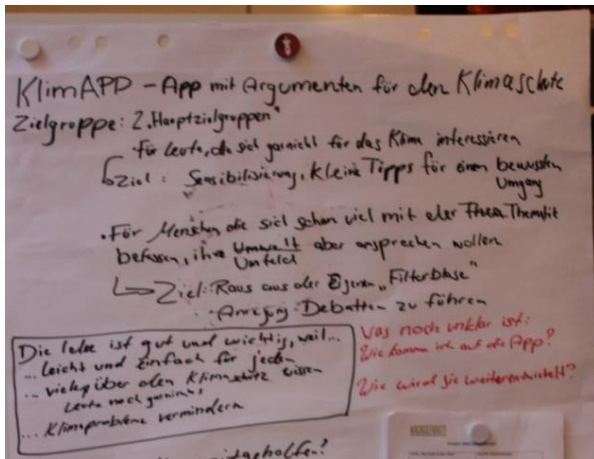 KlimAPP - App mit Argumenten für den Klimaschutz
Zielgruppe: 2 „Hauptzielgruppen"
Für Leute, die sich garnicht für das Klima interessieren
Ziel: Sensibilisierung, kleine Tipps für einen bewussten
Umgang
• Für Menschen die sich schon viel mit der Thematik
befassen, ihre Umwelt aber ansprechen wollen
Umfeld
Ziel: Raus aus der Eigenen „Filterblase"
- Anregung: Debatten zu führen
Die Idee ist gut und wichtig, weil...
... leicht und Einfach für jeden
... vieles über den Klimaschutz wissen
Leute noch garnicht
... Klimaprobleme vermindern
Was noch unklar ist:
Wie komme ich auf die App?
Wie wird sie weiterentwickelt?
mitgeholfen?